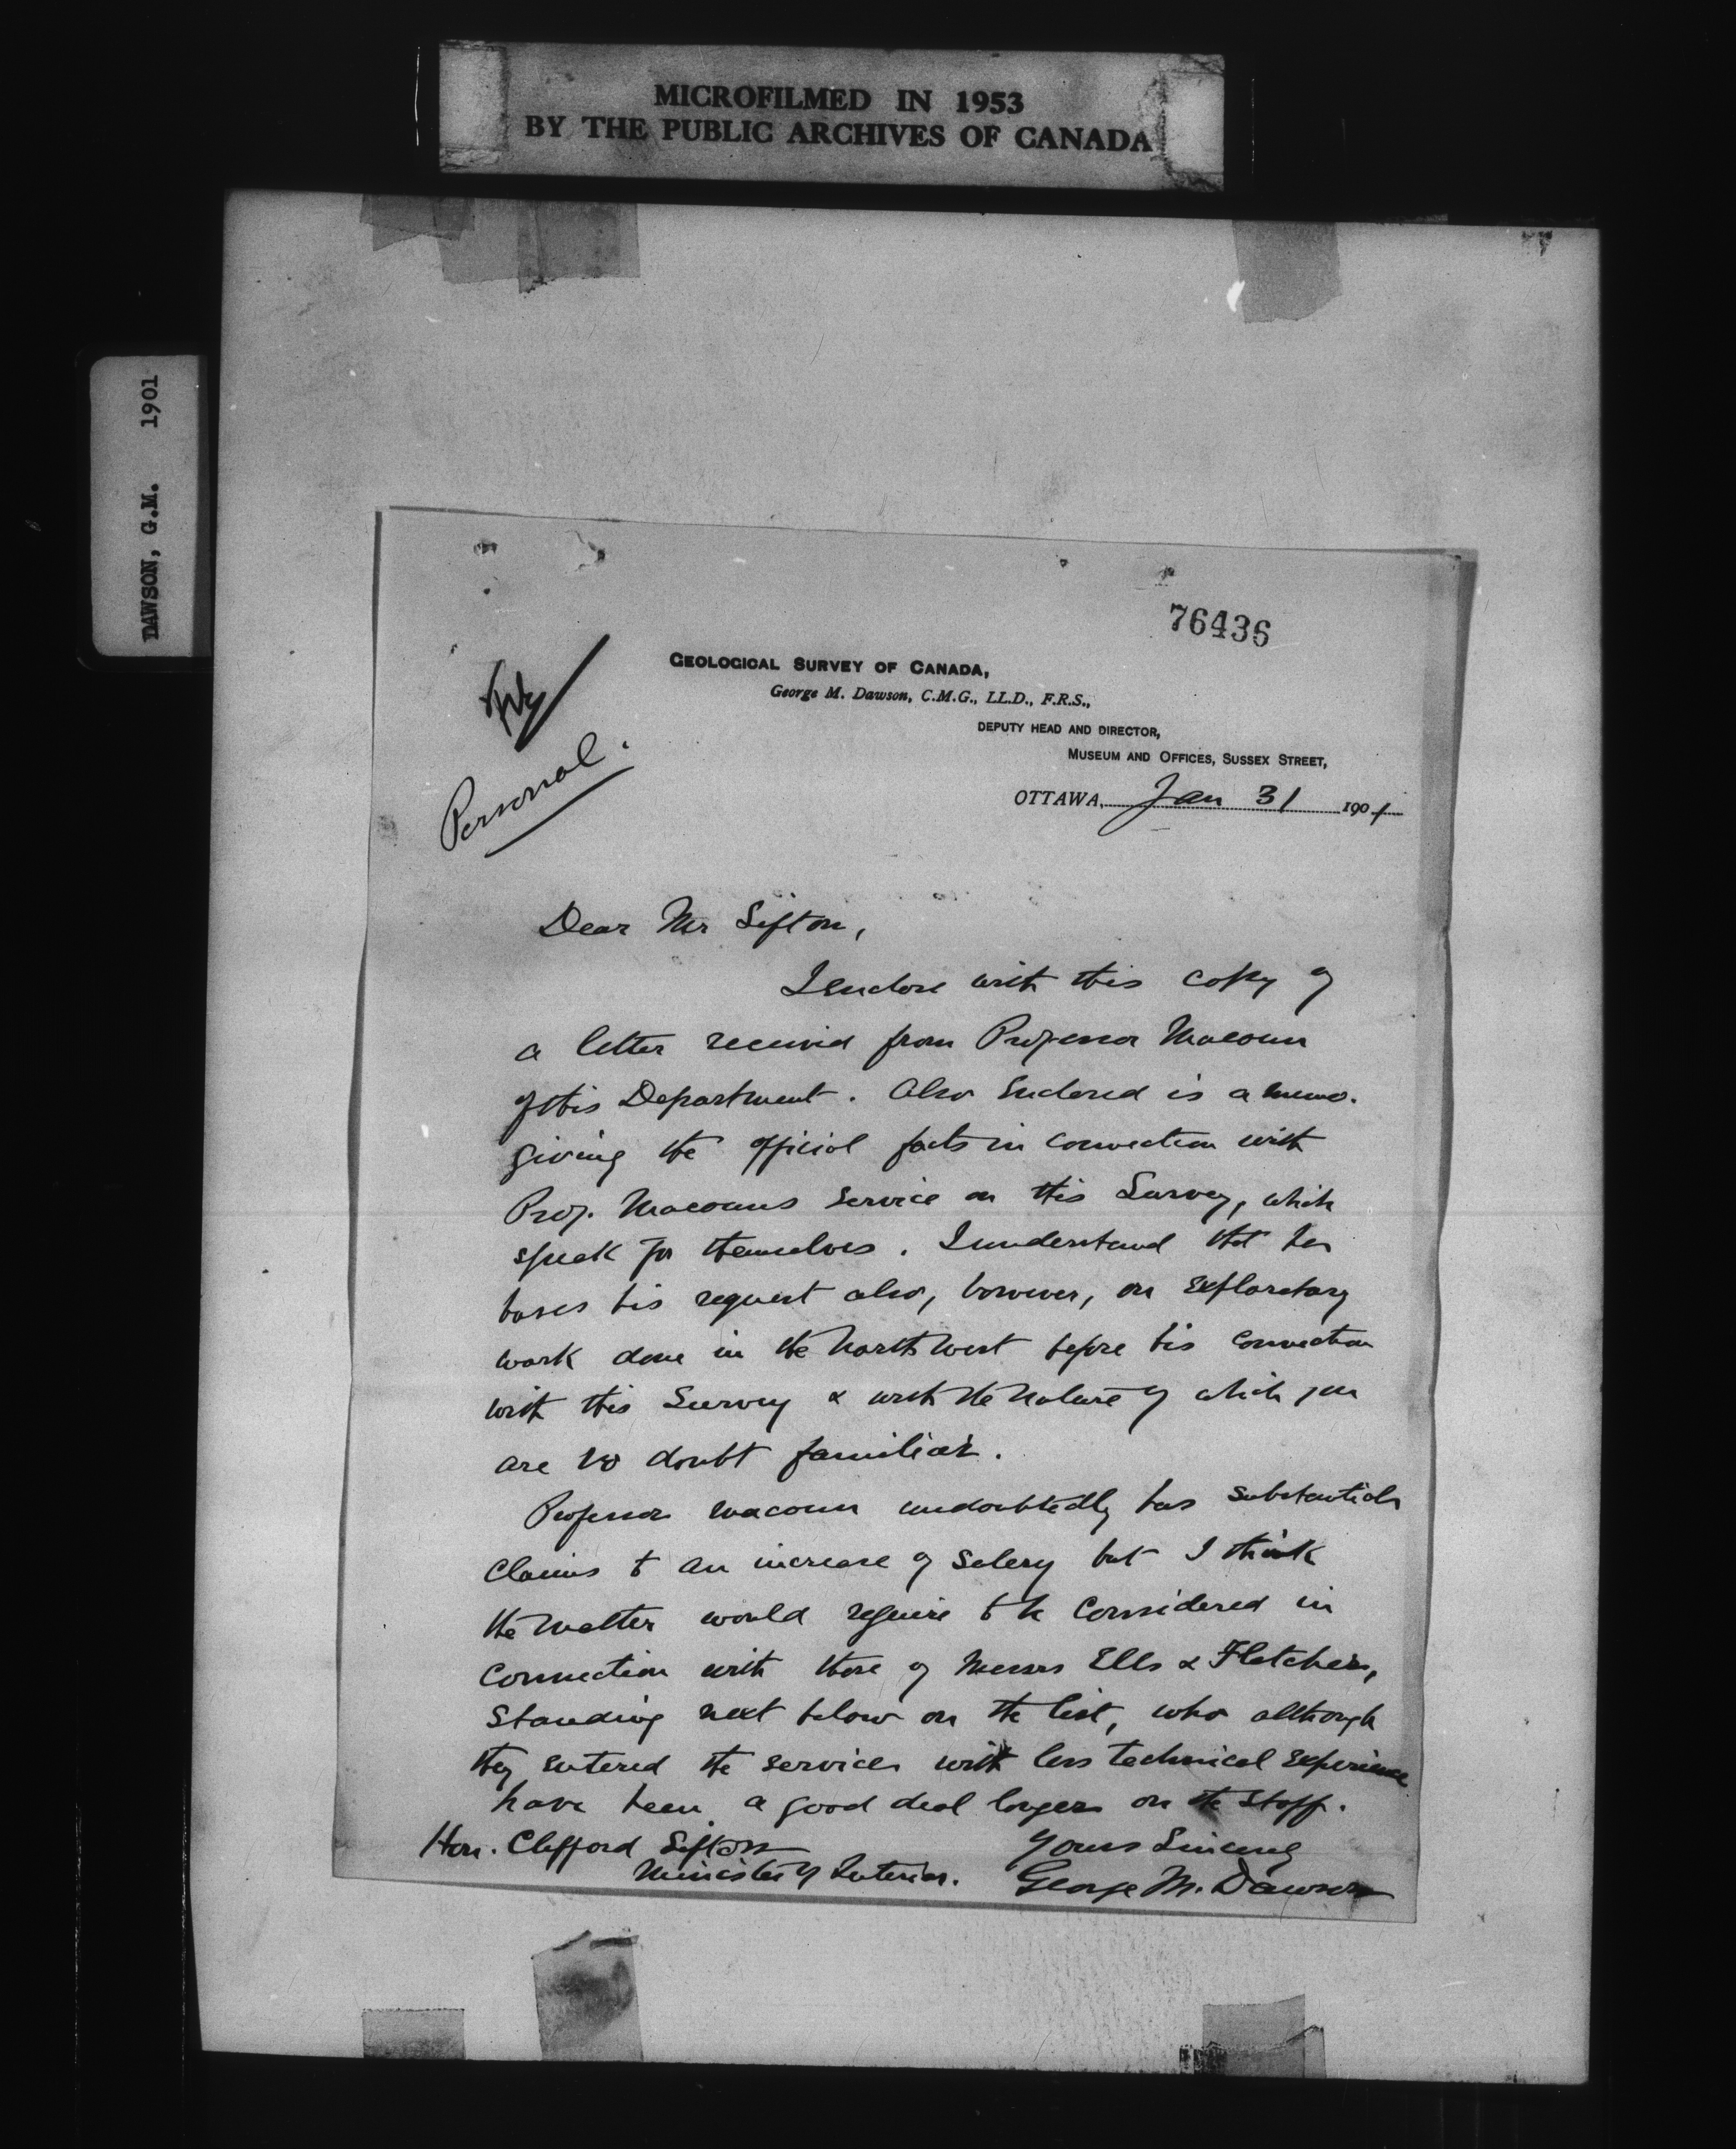 MICROFILMED IN 1953
BY THE PUBLIC ARCHIVES OF CANADA
DAWSON, G.M. 1901
76436
GEOLOGICAL SURVEY OF CANADA,
George M. Dawson, C.M.G., LL.D., F.R.S.,
DEPUTY HEAD AND DIRECTOR,
MUSEUM AND OFFICES, SUSSEX STREET,
OTTAWA, Jan 31 1901
Personal.
Dear Mr Sifton,
I enclose with this copy of
a letter received from Professor Macoun
of this Department. Also enclosed is a memo.
giving the official facts in connection with
Prof. Macouns service on this Survey, which
speak for themselves. I understand that he
bases his request also, however, on exploratory
work done in the North West before his connection
with this Survey & with the nature of which you
are no doubt familiar.
Professor Macoun undoubtedly has substantial
claims to an increase of salery but I think
the matter would require to be considered in
connection with those of Messrs Ells & Fletcher,
standing next below on the list, who although
they entered the service with less technical experience
have been a good deal longer on the staff.
Yours Sincerely
George M. Dawson
Hon. Clifford Sifton
Minister of Interior.